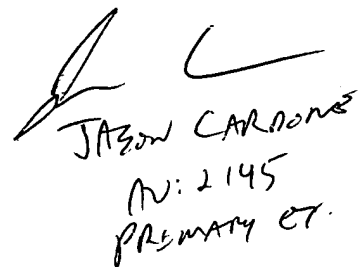 JASON CARDONE
AU: 2145
PRIMARY EX.